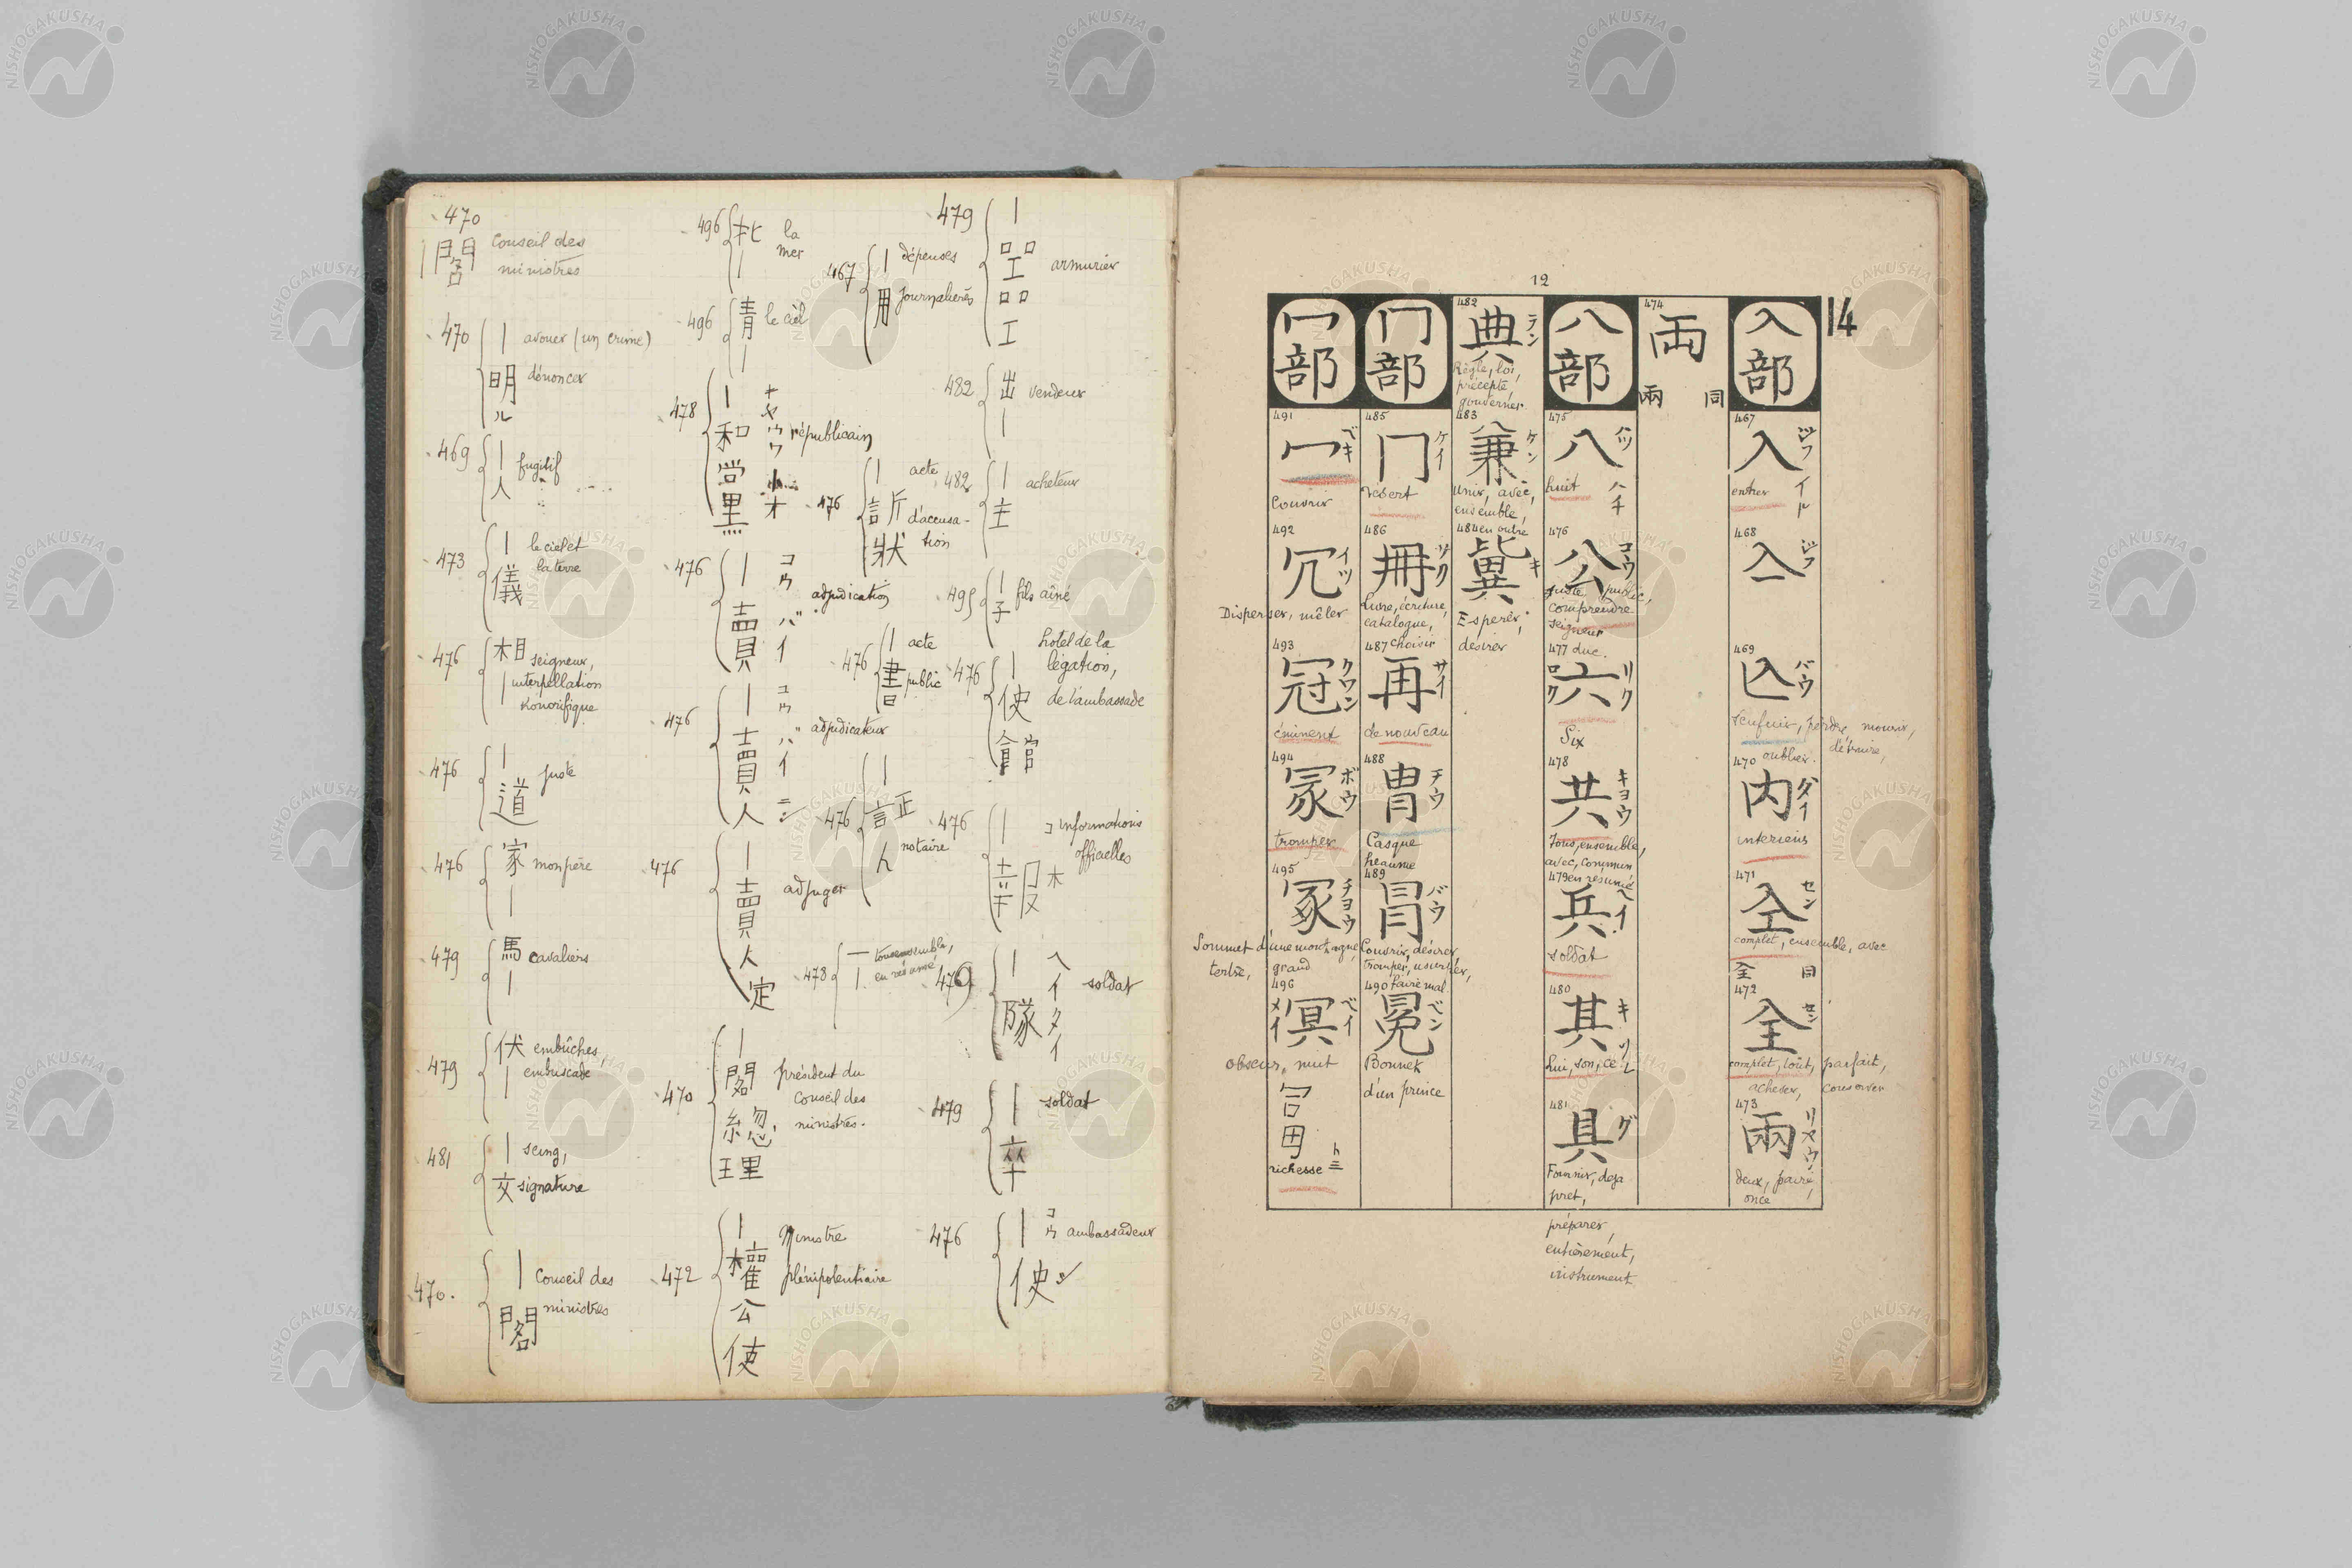 470
|閣 Conseil des
ministres
470 | avouer (un crime)
明 dénoncer
ル
469 | fugitif
人
473 | le ciel et
儀 la terre
476 相 seigneur,
| interpellation
honorifique
476 | juste
道
476 家 mon père
|
479 馬 cavaliers
|
479 伏 embûches,
| embuscade
481 | seing,
文 signature
470. | Conseil des
閣 ministres
496 北 la
| mer
496 青 le ciel
|
478 | キヤウワ
和 républicain
党
黒
476 | コウバイ
賣 adjudication
476 | コウバイニン
賣 adjudicateur
人
476 |
賣 adjuger
人
定
470 |
閣 président du
総 Conseil des
理 ministres.
472 | Ministre
權 plénipotentiaire
公
使
467 | dépenses
用 journalières
476 | acte
訴 d'accusa-
状 tion
476 | acte
書 public
476 |
証
人 notaire
478 一 tous ensemble,
| en résumé
479 |
品
工 armurier
品
工
482 出 vendeur
|
482 | acheteur
主
495 | fils ainé
子
476 | hotel de la
使 légation,
館 de l'ambassade
476 | informations
報 officielles
479 | ヘイタイ soldat
隊
479 | soldat
卒
476 | コウ ambassadeur
使
12
14
入部
467
入 ジフ イト
entrer
468
亼 ジフ
469
亾 バウ
s'enfuir, perdre, mourir,
oublier. détruire,
470
内 ダイ
interieur
471
仝 セン
complet, ensemble, avec
全 同
472
全 セン
complet, tout, parfait,
achever, conserver
473
兩 リヤウ
deux, paire,
once
474
両
兩 同
八部
475
八 ハツ ハチ
huit
476
公 コウ
juste, public,
comprendre
seigneur
477 duc.
六 リク ロク
Six
478
共 キヨウ
Tous, ensemble,
avec, commun,
479 en résumé
兵 ヘイ
soldat
480
其 キ ソレ
Lui, son, ce
481
具 グ
Fournir, deja
pret,
préparer,
entièrement,
instrument
482
典 テン
Règle, loi,
précepte
gouverner
483
兼 ケン
unir, avec,
ensemble,
484 en outre
冀 キ
Esperer,
desirer
冂部
485
冂 ケイ
desert
486
冊 サク
Livre, écriture,
catalogue,
487 choisir
再 サイ
de nouveau
488
冑 チウ
Casque
heaume
489
冒 バウ
Couvrir, désirer,
tromper, usurper,
490 faire mal
冕 ベン
Bonnet
d'un prince
冖部
491
冖 ベキ
Couvrir
492
冗 イツ
Disperser, mêler
493
冠 クワン
éminent
494
冡 ボウ
tromper
495
冢 チヨウ
Sommet d'une montagne,
tertre, grand
496
冥 ベイ メイ
obscur, nuit
冨 トミ
richesse